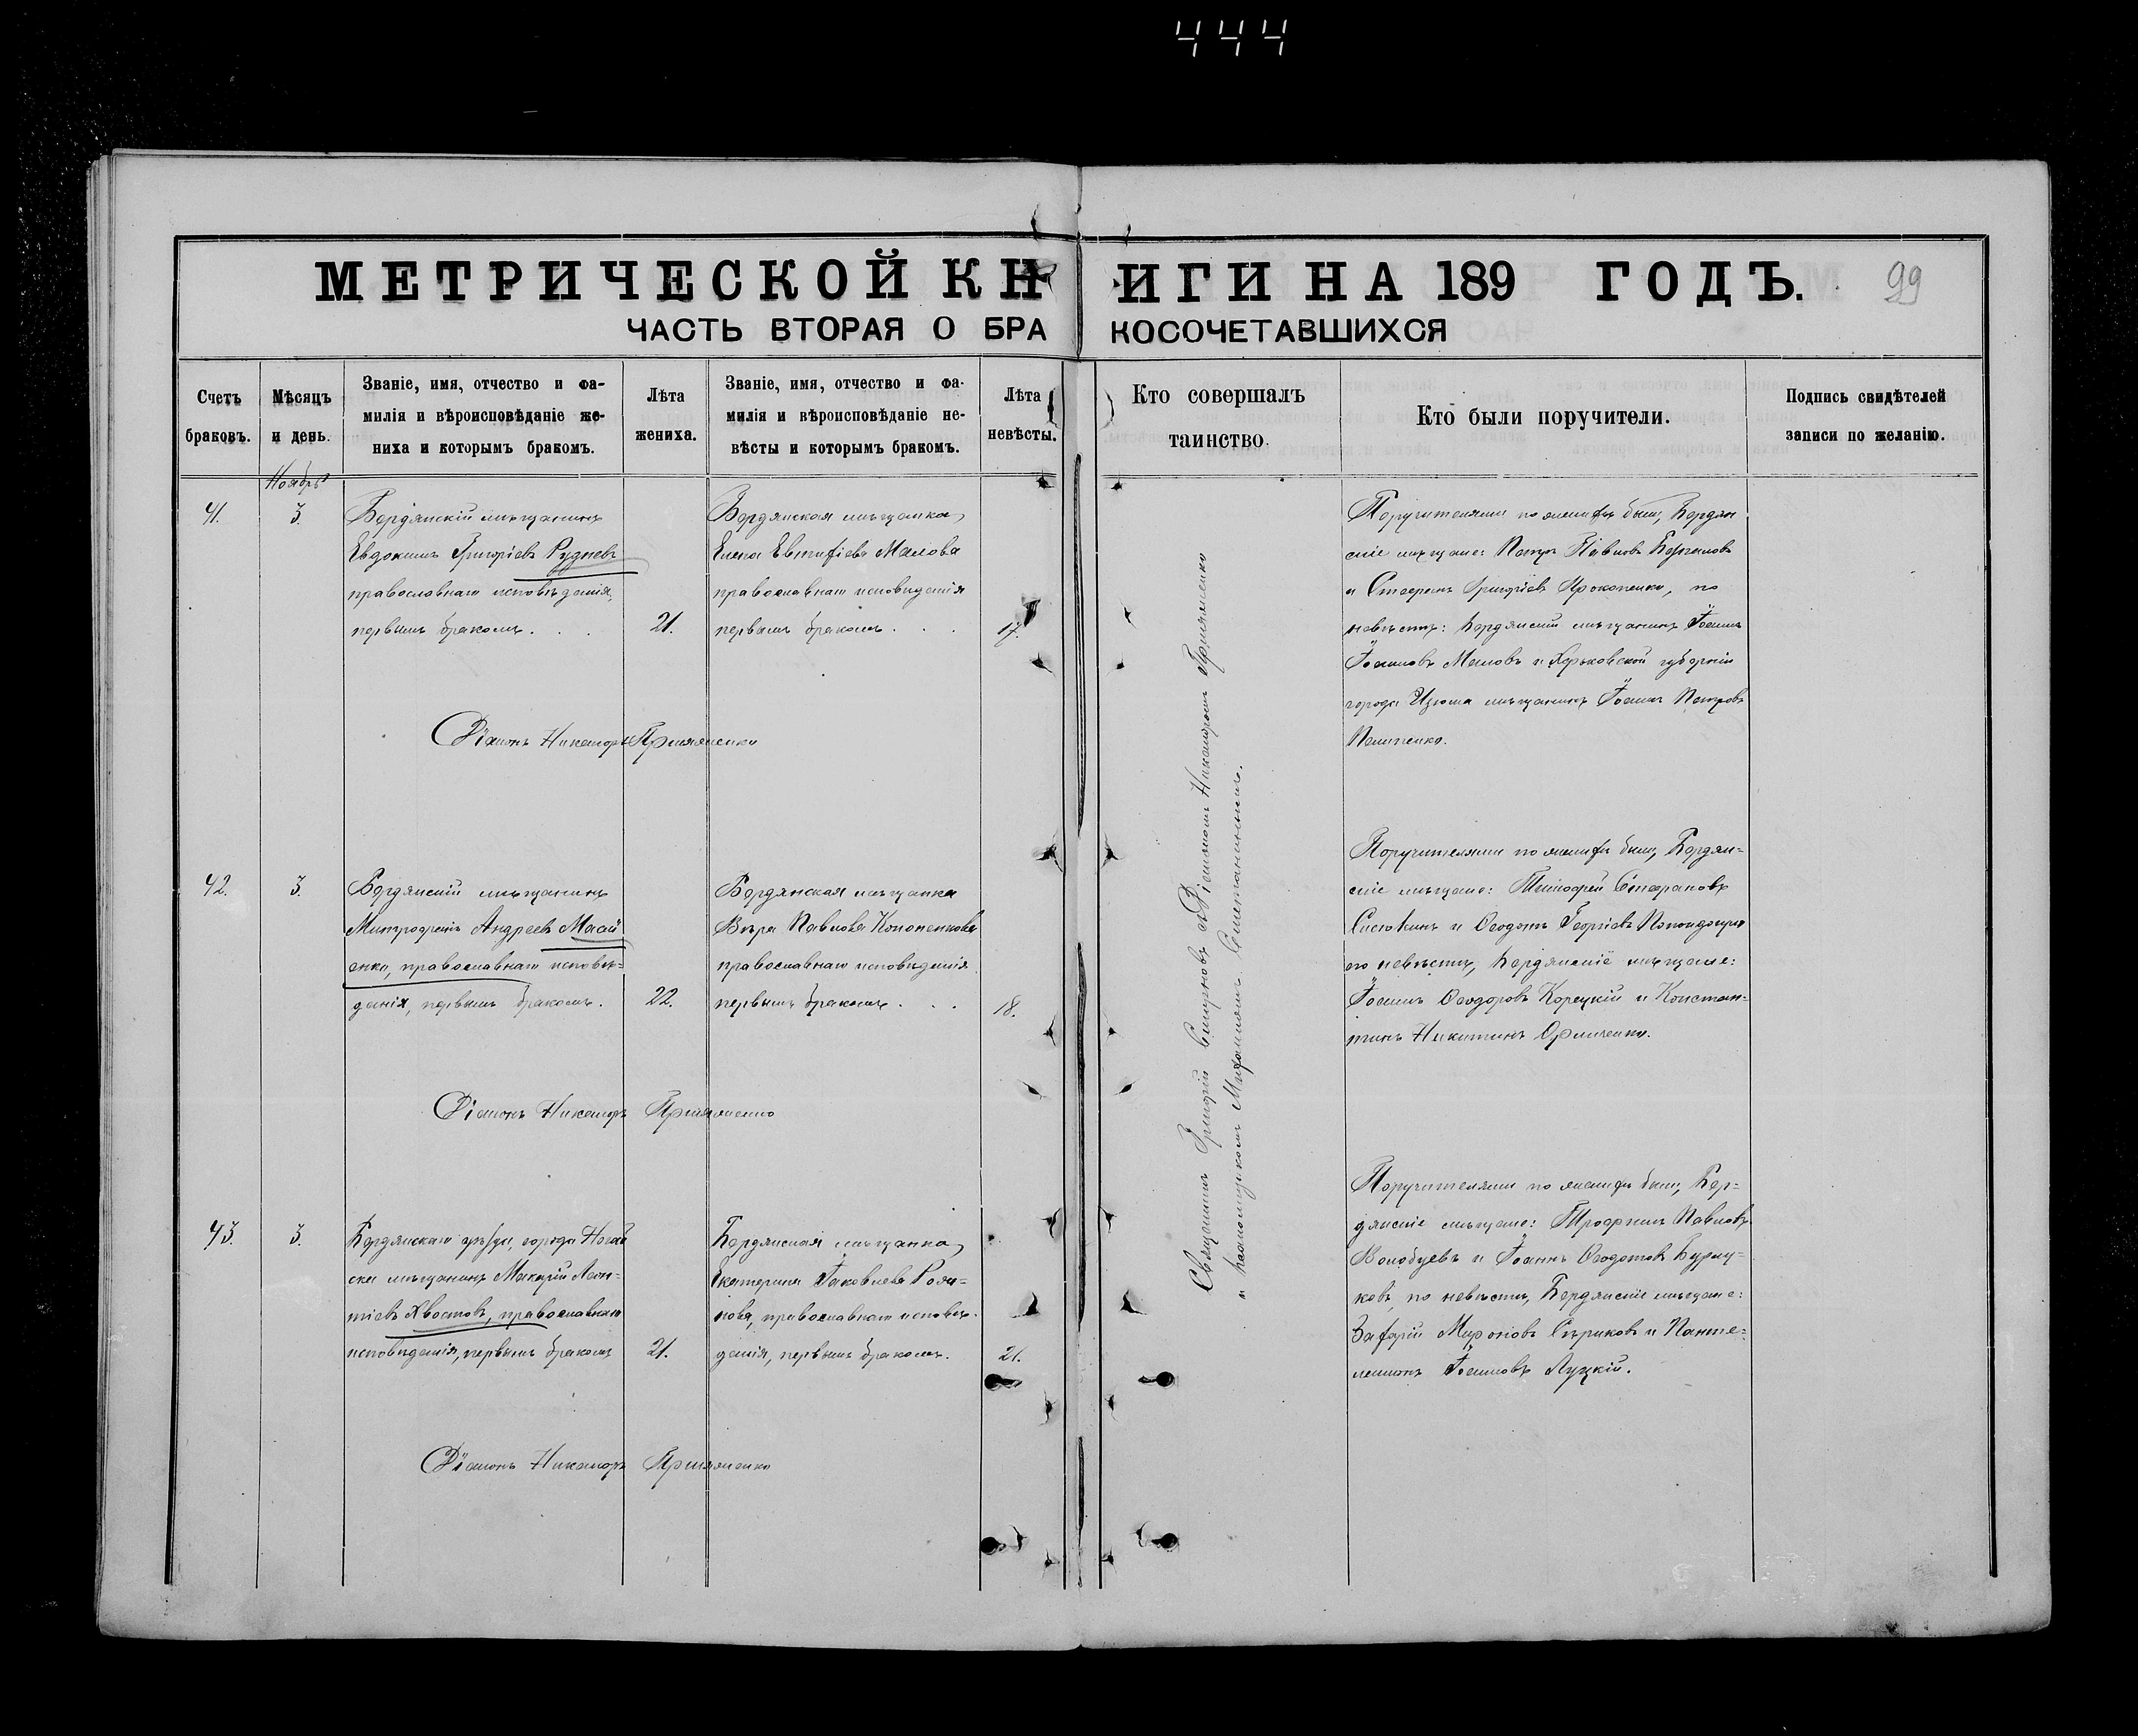 444
МЕТРИЧЕСКОЙ КНИГИ НА 189 ГОДЪ.
99
ЧАСТЬ ВТОРАЯ О БРАКОСОЧЕТАВШИХСЯ
Счетъ браковъ.
Мѣсяцъ и день.
Званіе, имя, отчество и фа-
милія и вѣроисповѣданіе же-
ниха и которымъ бракомъ.
Лѣта жениха.
Званіе, имя, отчество и фа-
милія и вѣроисповѣданіе не-
вѣсты и которымъ бракомъ.
Лѣта невѣсты.
Кто совершалъ таинство.
Кто были поручители.
Подпись свидѣтелей
записи по желанію.
Ноябрь
41.
3.
Бердянскій мѣщанинъ
Евдокимъ Григоріевъ Рудневъ
православнаго исповѣданія,
первымъ бракомъ . . .
21.
Бердянская мѣщанка
Елена Евтифіева Малова
православнаго исповѣданія
первымъ бракомъ . . .
17.
Поручителями по женихѣ были, Бердян
скіе мѣщане: Петръ Павловъ
и Стефанъ Григоріевъ Прокопенко, по
невѣстѣ: Бердянскій мѣщанинъ Іоаннъ
Іоанновъ Маловъ и Харьковской губерніи
города Изюма мѣщанинъ Іоаннъ Петровъ
Пелипенко.
Діаконъ Никаноръ
42.
3.
Бердянскій мѣщанинъ
Митрофанъ Андреевъ Мосій
енко, православнаго исповѣ-
данія, первымъ бракомъ.
22.
Бердянская мѣщанка
Вѣра Павлова Кононенкова
православнаго исповѣданія
первымъ бракомъ . . .
18.
Поручителями по женихѣ были, Бердян-
скіе мѣщане: Тимофей Стефановъ
Сисюкинъ и Ѳеодотъ Георгіевъ
по невѣстѣ, Бердянскіе мѣщане:
Іоаннъ Ѳеодоровъ Корецкій и Констан-
тинъ Никитинъ
Діаконъ Никаноръ
43.
3.
Бердянскаго уѣзда, города Ногай
ска мѣщанинъ Макарій Леон-
тіевъ Хвостовъ, православнаго
исповѣданія, первымъ бракомъ
21.
Бердянская мѣщанка
Екатерина Іаковлева
православнаго исповѣ-
данія, первымъ бракомъ.
21.
Поручителями по женихѣ были, Бер-
дянскіе мѣщане: Трофимъ Павловъ
Волобуевъ и Іоаннъ Ѳеодотовъ Бурлу-
ковъ, по невѣстѣ, Бердянскіе мѣщане:
Захарій Мироновъ Сѣриковъ и Панте-
леимонъ Іоанновъ Луцкій.
Діаконъ Никаноръ
Священникъ Григорій съ Діакономъ Никаноромъ
и псаломщикомъ Михаиломъ